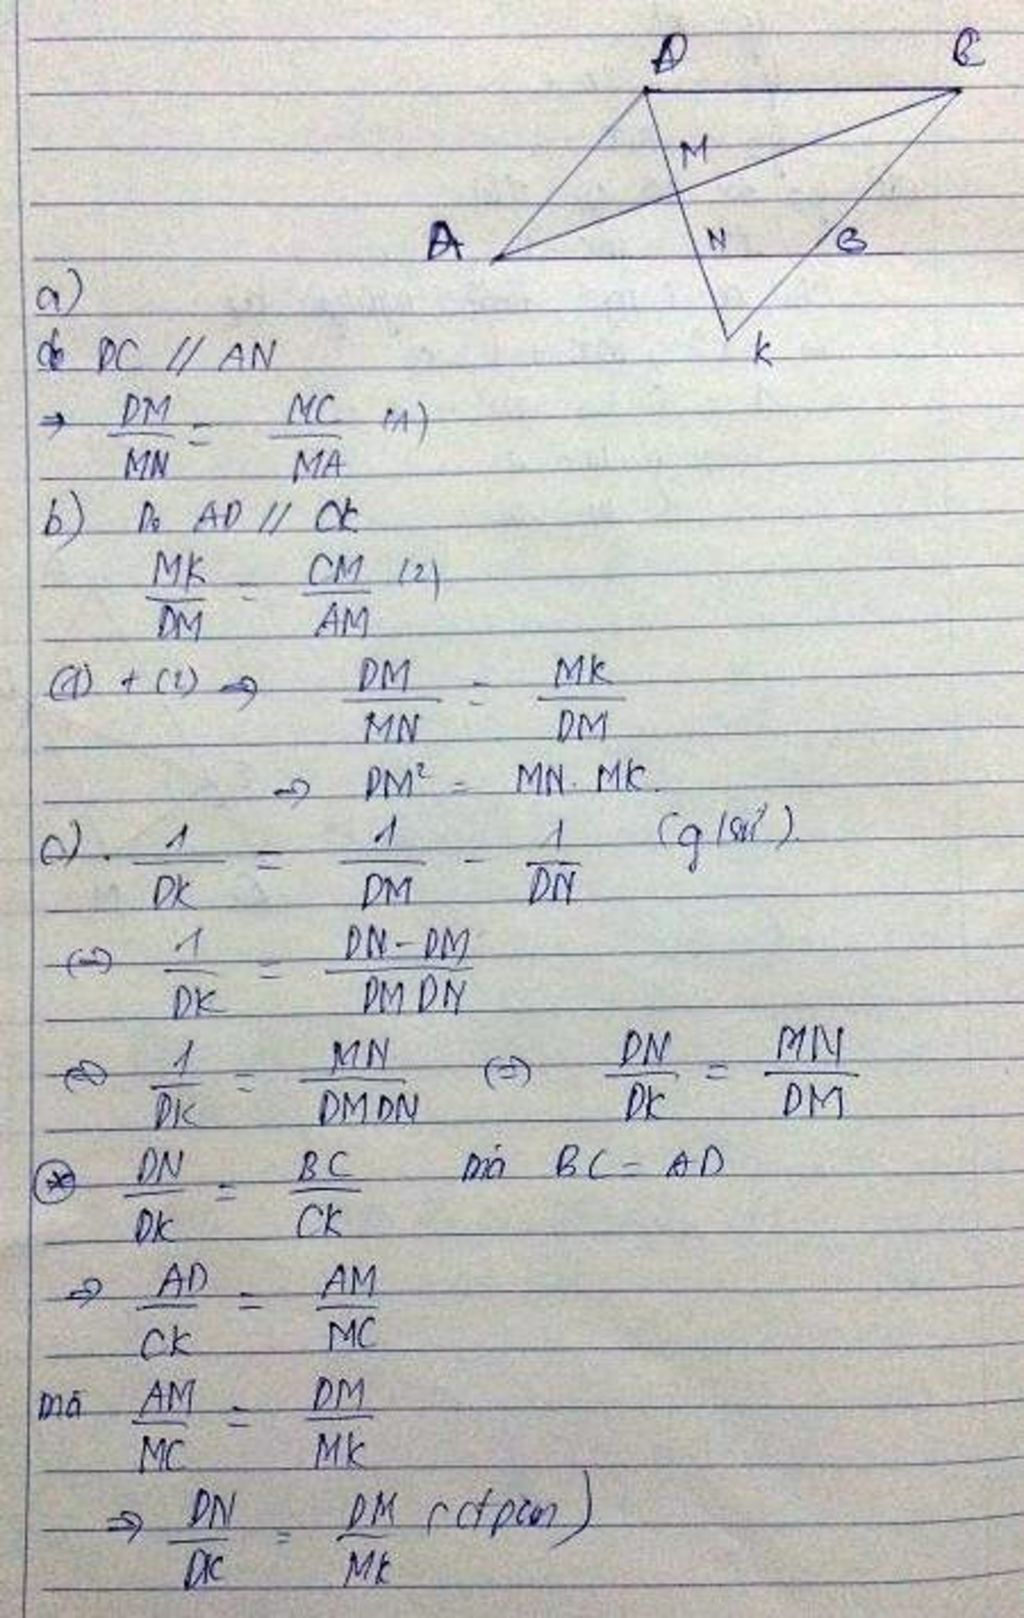 D C
M
A N B
K
a)
do DC // AN
⇒ DM/MN = MC/MA (1)
b) Do AD // CK
MK/DM = CM/AM (2)
(1) + (2) ⇒ DM/MN = MK/DM
⇒ DM² = MN. MK.
c). 1/DK = 1/DM - 1/DN
(=) 1/DK = DN - DM/DM DN
(=) 1/DK = MN/DM DN (=) DN/DK = MN/DM
* DN/DK = BC/CK mà BC = AD
⇒ AD/CK = AM/MC
mà AM/MC = DM/MK
⇒ DN/DK = DM/MK (đfpcm)